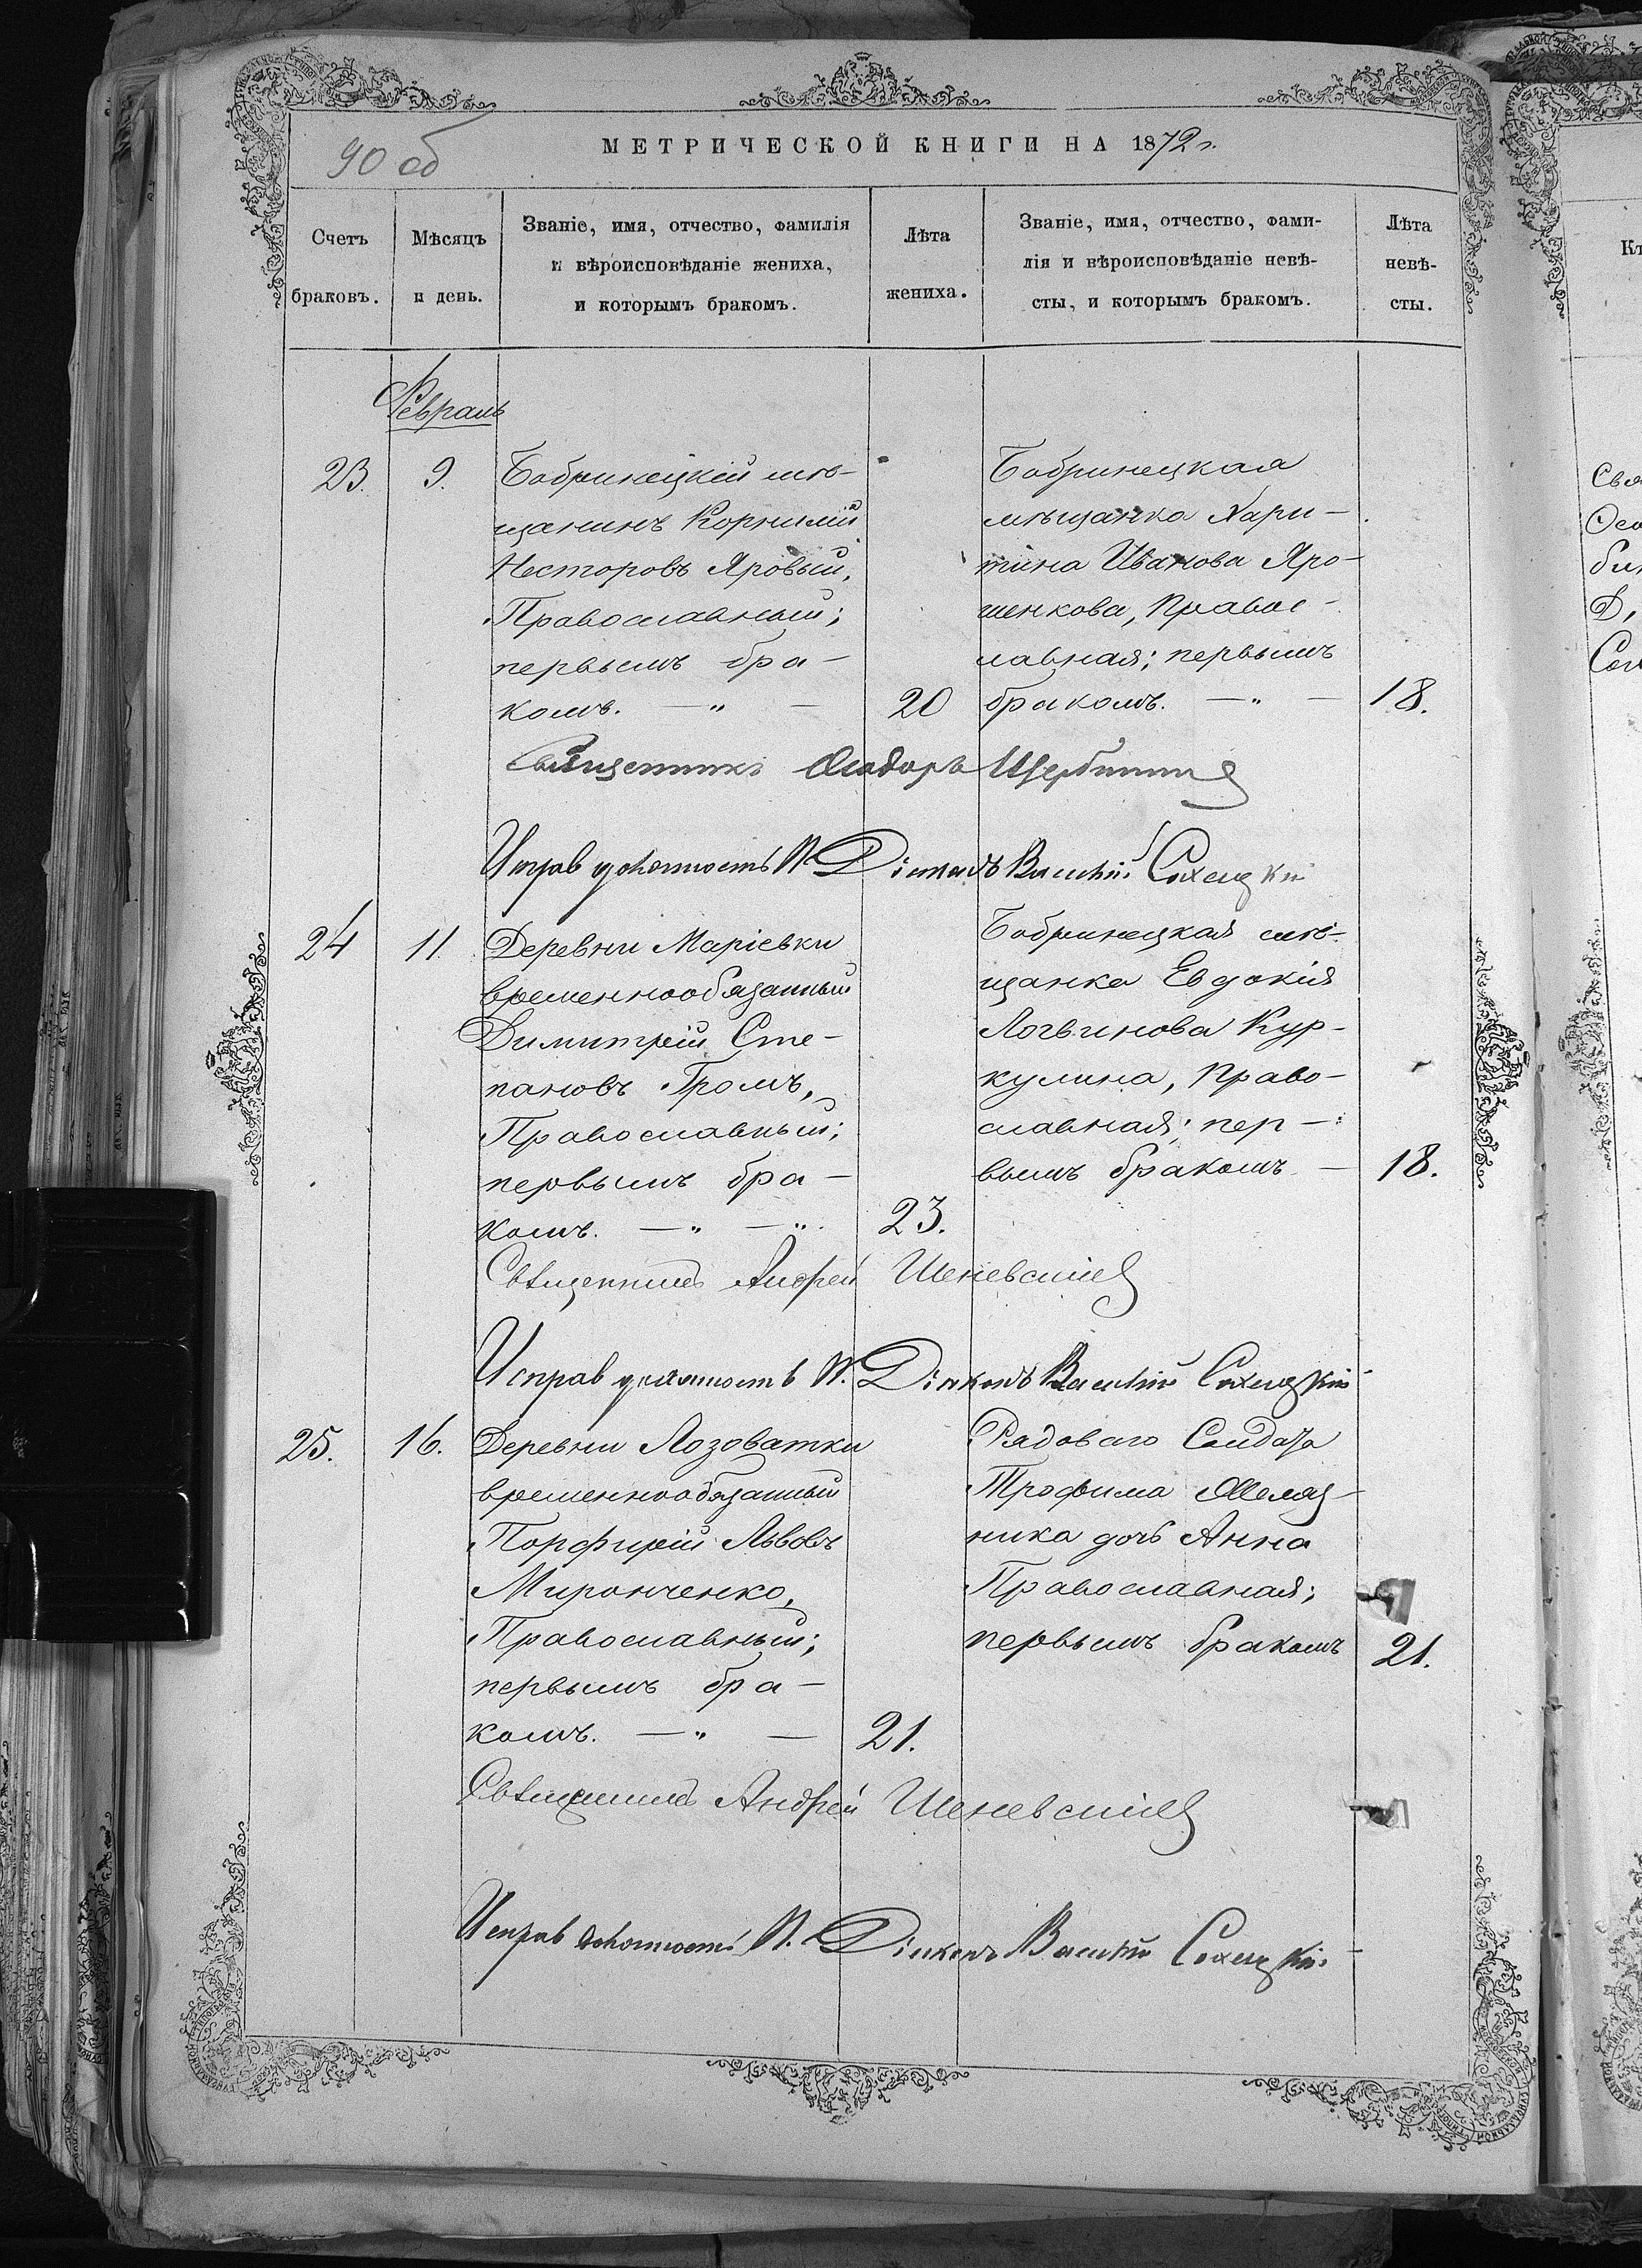 90 об
МЕТРИЧЕСКОЙ КНИГИ НА 1872 г.
Счетъ браковъ.
Мѣсяцъ и день.
Званіе, имя, отчество, фамилія
и вѣроисповѣданіе жениха,
и которымъ бракомъ.
Лѣта жениха.
Званіе, имя, отчество, фами-
лія и вѣроисповѣданіе невѣ-
сты, и которымъ бракомъ.
Лѣта невѣ-
сты.
Февраль
23. 9.
Бобринецкій мѣ-
щанинъ Корнилій
Несторовъ Яровый,
Православный;
первымъ бра-
комъ. — „ —
20
Бобринецкая
мѣщанка Хари-
тина Иванова Яро-
шенкова, Правос-
лавная; первымъ
бракомъ. — „ —
18.
Священникъ Ѳеодоръ Щербина
Исправ должность П. Діаконъ Василій Сахецкій
24 11.
Деревни Маріевки
временнообязанный
Димитрій Сте-
пановъ Громъ,
Православный;
первымъ бра-
комъ. — „ — „
23.
Бобринецкая мѣ-
щанка Евдокія
Логвинова Кур-
кулина, Право-
славная; пер-
вымъ бракомъ —
18.
Священникъ Андрей
Исправ должность П. Діаконъ Василій Сахецкій
25. 16.
Деревни Лозоватки
временнообязанный
Порфирій Львовъ
Миронченко,
Православный;
первымъ бра-
комъ. — „ —
21.
Рядоваго Солдата
Трофима
ника дочь Анна
Православная;
первымъ бракомъ
21.
Священникъ Андрей
Исправ должность П. Діаконъ Василій Сахецкій